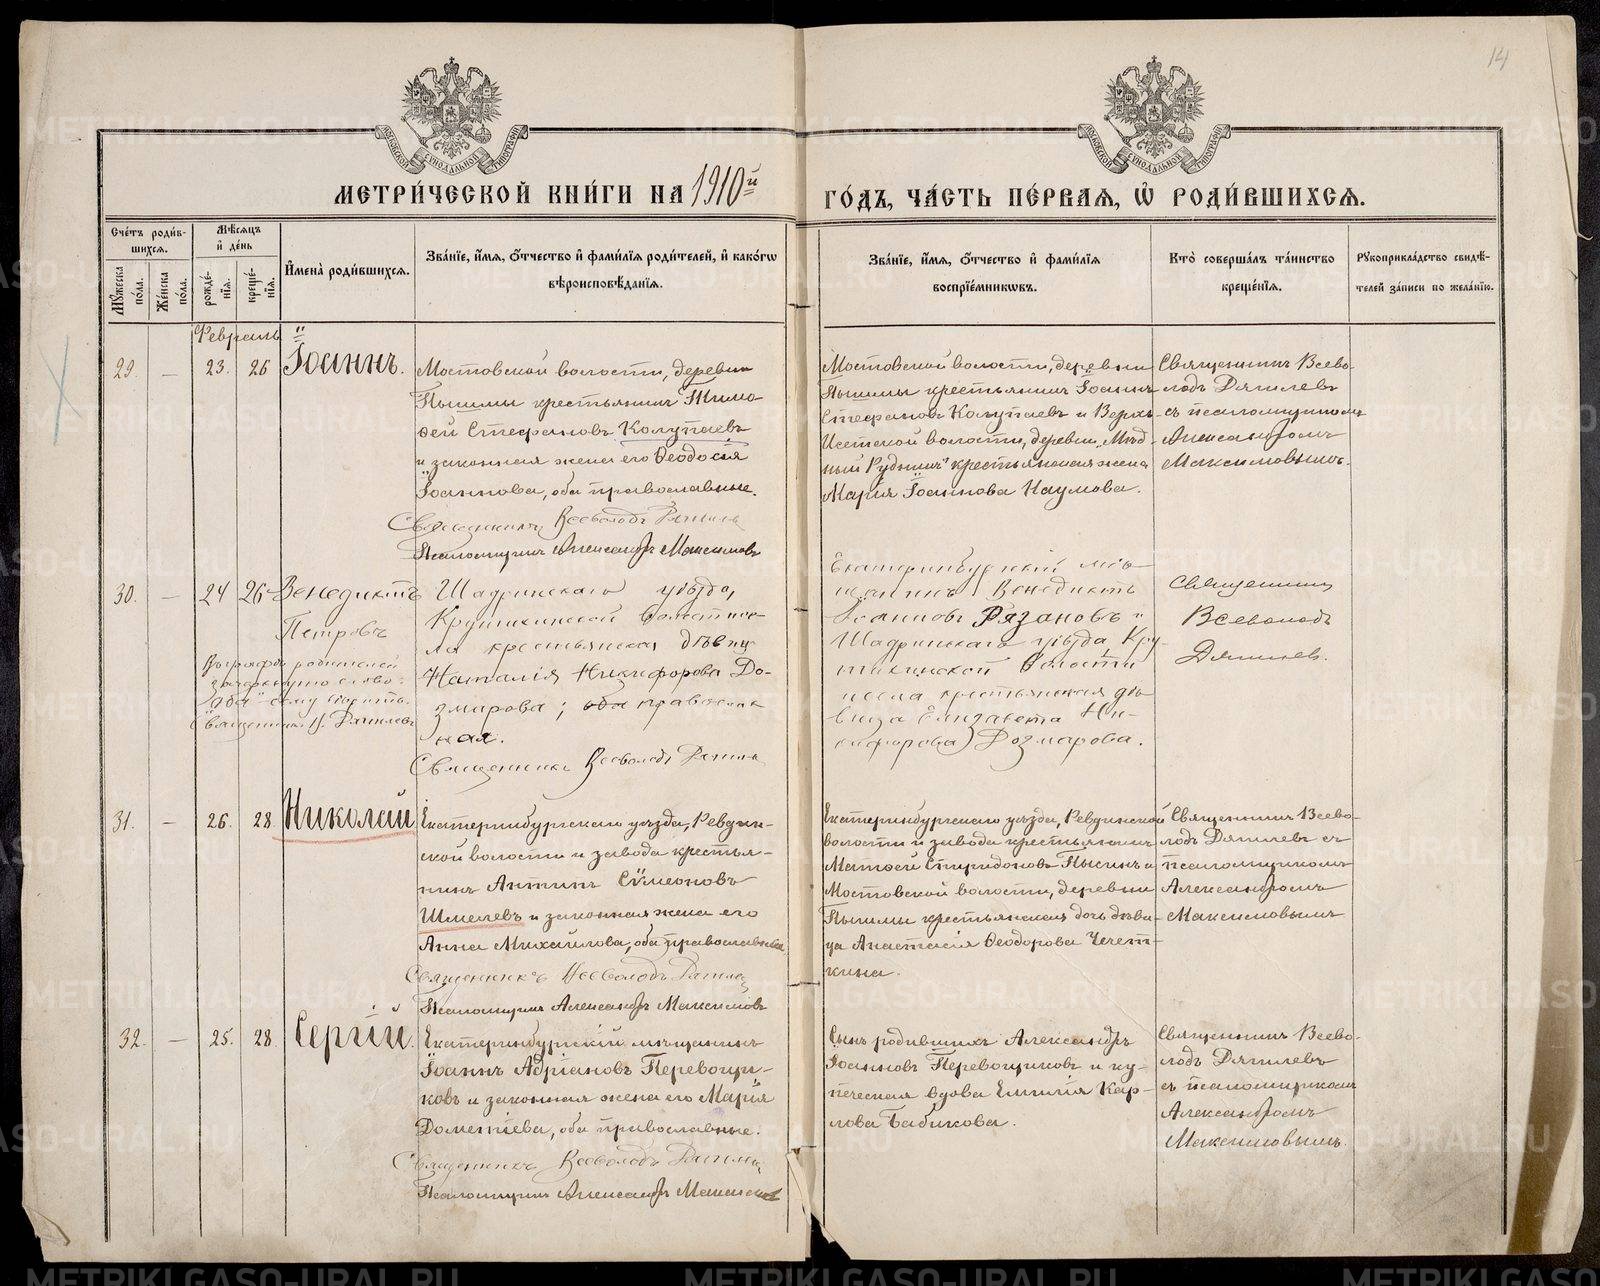 14
МОСКОВСКОЙ СѴНОДАЛЬНОЙ ТИПОГРАФІИ
МОСКОВСКОЙ СѴНОДАЛЬНОЙ ТИПОГРАФІИ
МЕТРИ́ЧЕСКОЙ КНИ́ГИ НА 1910й ГО́ДЪ, ЧА́СТЬ ПЕ́РВАѦ, Ѡ҆ РОДИ́ВШИХСѦ.
Сче́тъ роди́в-
шихсѧ.
Мѣ́сѧцъ
и҆ де́нь
Мꙋ́жеска
по́ла.
Же́нска
по́ла.
рожде́-
нїѧ.
креще́-
нїѧ.
И҆мена̀ роди́вшихсѧ.
Зва́нїе, и҆́мѧ, о҆́тчество и҆ фами́лїѧ роди́телей, и҆ како́гѡ
вѣроисповѣ́данїѧ.
Зва́нїе, и҆́мѧ, о҆́тчество и҆ фами́лїѧ
воспрїе́мникѡвъ.
Кто̀ соверша́лъ та́инство
креще́нїѧ.
Рꙋкоприкла́дство свидѣ́-
телей за́писи по жела́нїю.
Февраль
29. — 23. 26 Іоаннъ.
Мостовской волости, деревни
Пышмы крестьянинъ Тимо-
фей Стефановъ Колупаевъ
и законная жена его Ѳеодосія
Іоаннова, оба православные.
Священникъ Всеволодъ Дягилевъ
Псаломщикъ Александръ Максимовъ
Мостовской волости, деревни
Пышмы крестьянинъ Іоаннъ
Стефановъ Колупаевъ и Верхъ-
Исетской волости, деревни „Мѣд-
ный Рудникъ" крестьянская жена
Марія Іоаннова Наумова.
Священникъ Всево-
лодъ Дягилевъ
съ псаломщикомъ
Александромъ
Максимовымъ.
30. — 24 26 Венедиктъ
Петровъ
Въ графѣ родителей
зачеркнуто слово
„оба" сему вѣрить.
Священникъ В. Дягилевъ
Шадринскаго уѣзда,
Крутихинской волости се-
ла крестьянская дѣвица
Наталія Никифорова До-
змарова; оба православ-
ная.
Священникъ Всеволодъ Дягилевъ
Екатеринбургскій мѣ-
щанинъ Венедиктъ
Іоанновъ Рязановъ и
Шадринскаго уѣзда, Кру-
тихинской волости
и села крестьянская дѣ-
вица Елизавета Ни-
кифорова Дозмарова.
Священникъ
Всеволодъ
Дягилев.
31. — 26. 28. Николай
Екатеринбургскаго уѣзда, Ревдин-
ской волости и завода крестья-
нинъ Антипъ Сѵмеоновъ
Шмелевъ и законная жена его
Анна Михаилова, оба православные
Священникъ Всеволодъ Дягилевъ
Псаломщикъ Александръ Максимовъ
Екатеринбургскаго уѣзда, Ревдинской
волости и завода крестьянинъ
Матѳей Спиридоновъ Пысинъ и
Мостовской волости, деревни
Пышмы крестьянская дочь дѣви-
ца Анастасія Ѳеодорова Чечет-
кина.
Священникъ Всево-
лодъ Дягилевъ съ
псаломщикомъ
Александромъ
Максимовымъ
32. — 25. 28. Сергій.
Екатеринбургскій мѣщанинъ
Іоаннъ Адріановъ Перевощи-
ковъ и законная жена его Марія
Дометіева, оба православные.
Священникъ Всеволодъ Дягилевъ
Псаломщикъ Александръ Максимовъ
Сынъ родившихъ Александръ
Іоанновъ Перевощиковъ и ку-
печеская вдова Емилія Кар-
лова Бабикова.
Священникъ Всево-
лодъ Дягилевъ
съ псаломщикомъ
Александромъ
Максимовымъ.
METRIKI.GASO-URAL.RU